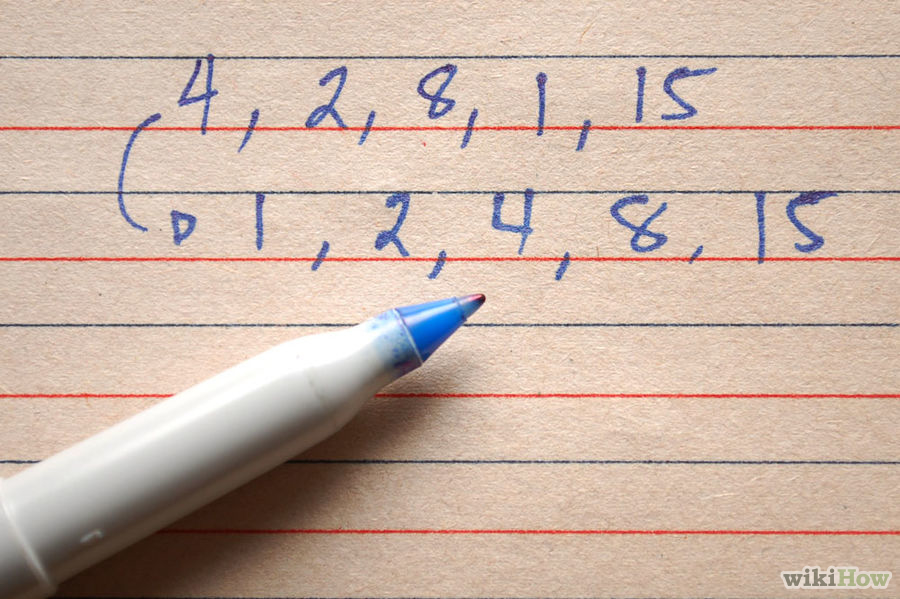 4, 2, 8, 1, 15
1, 2, 4, 8, 15
wikiHow